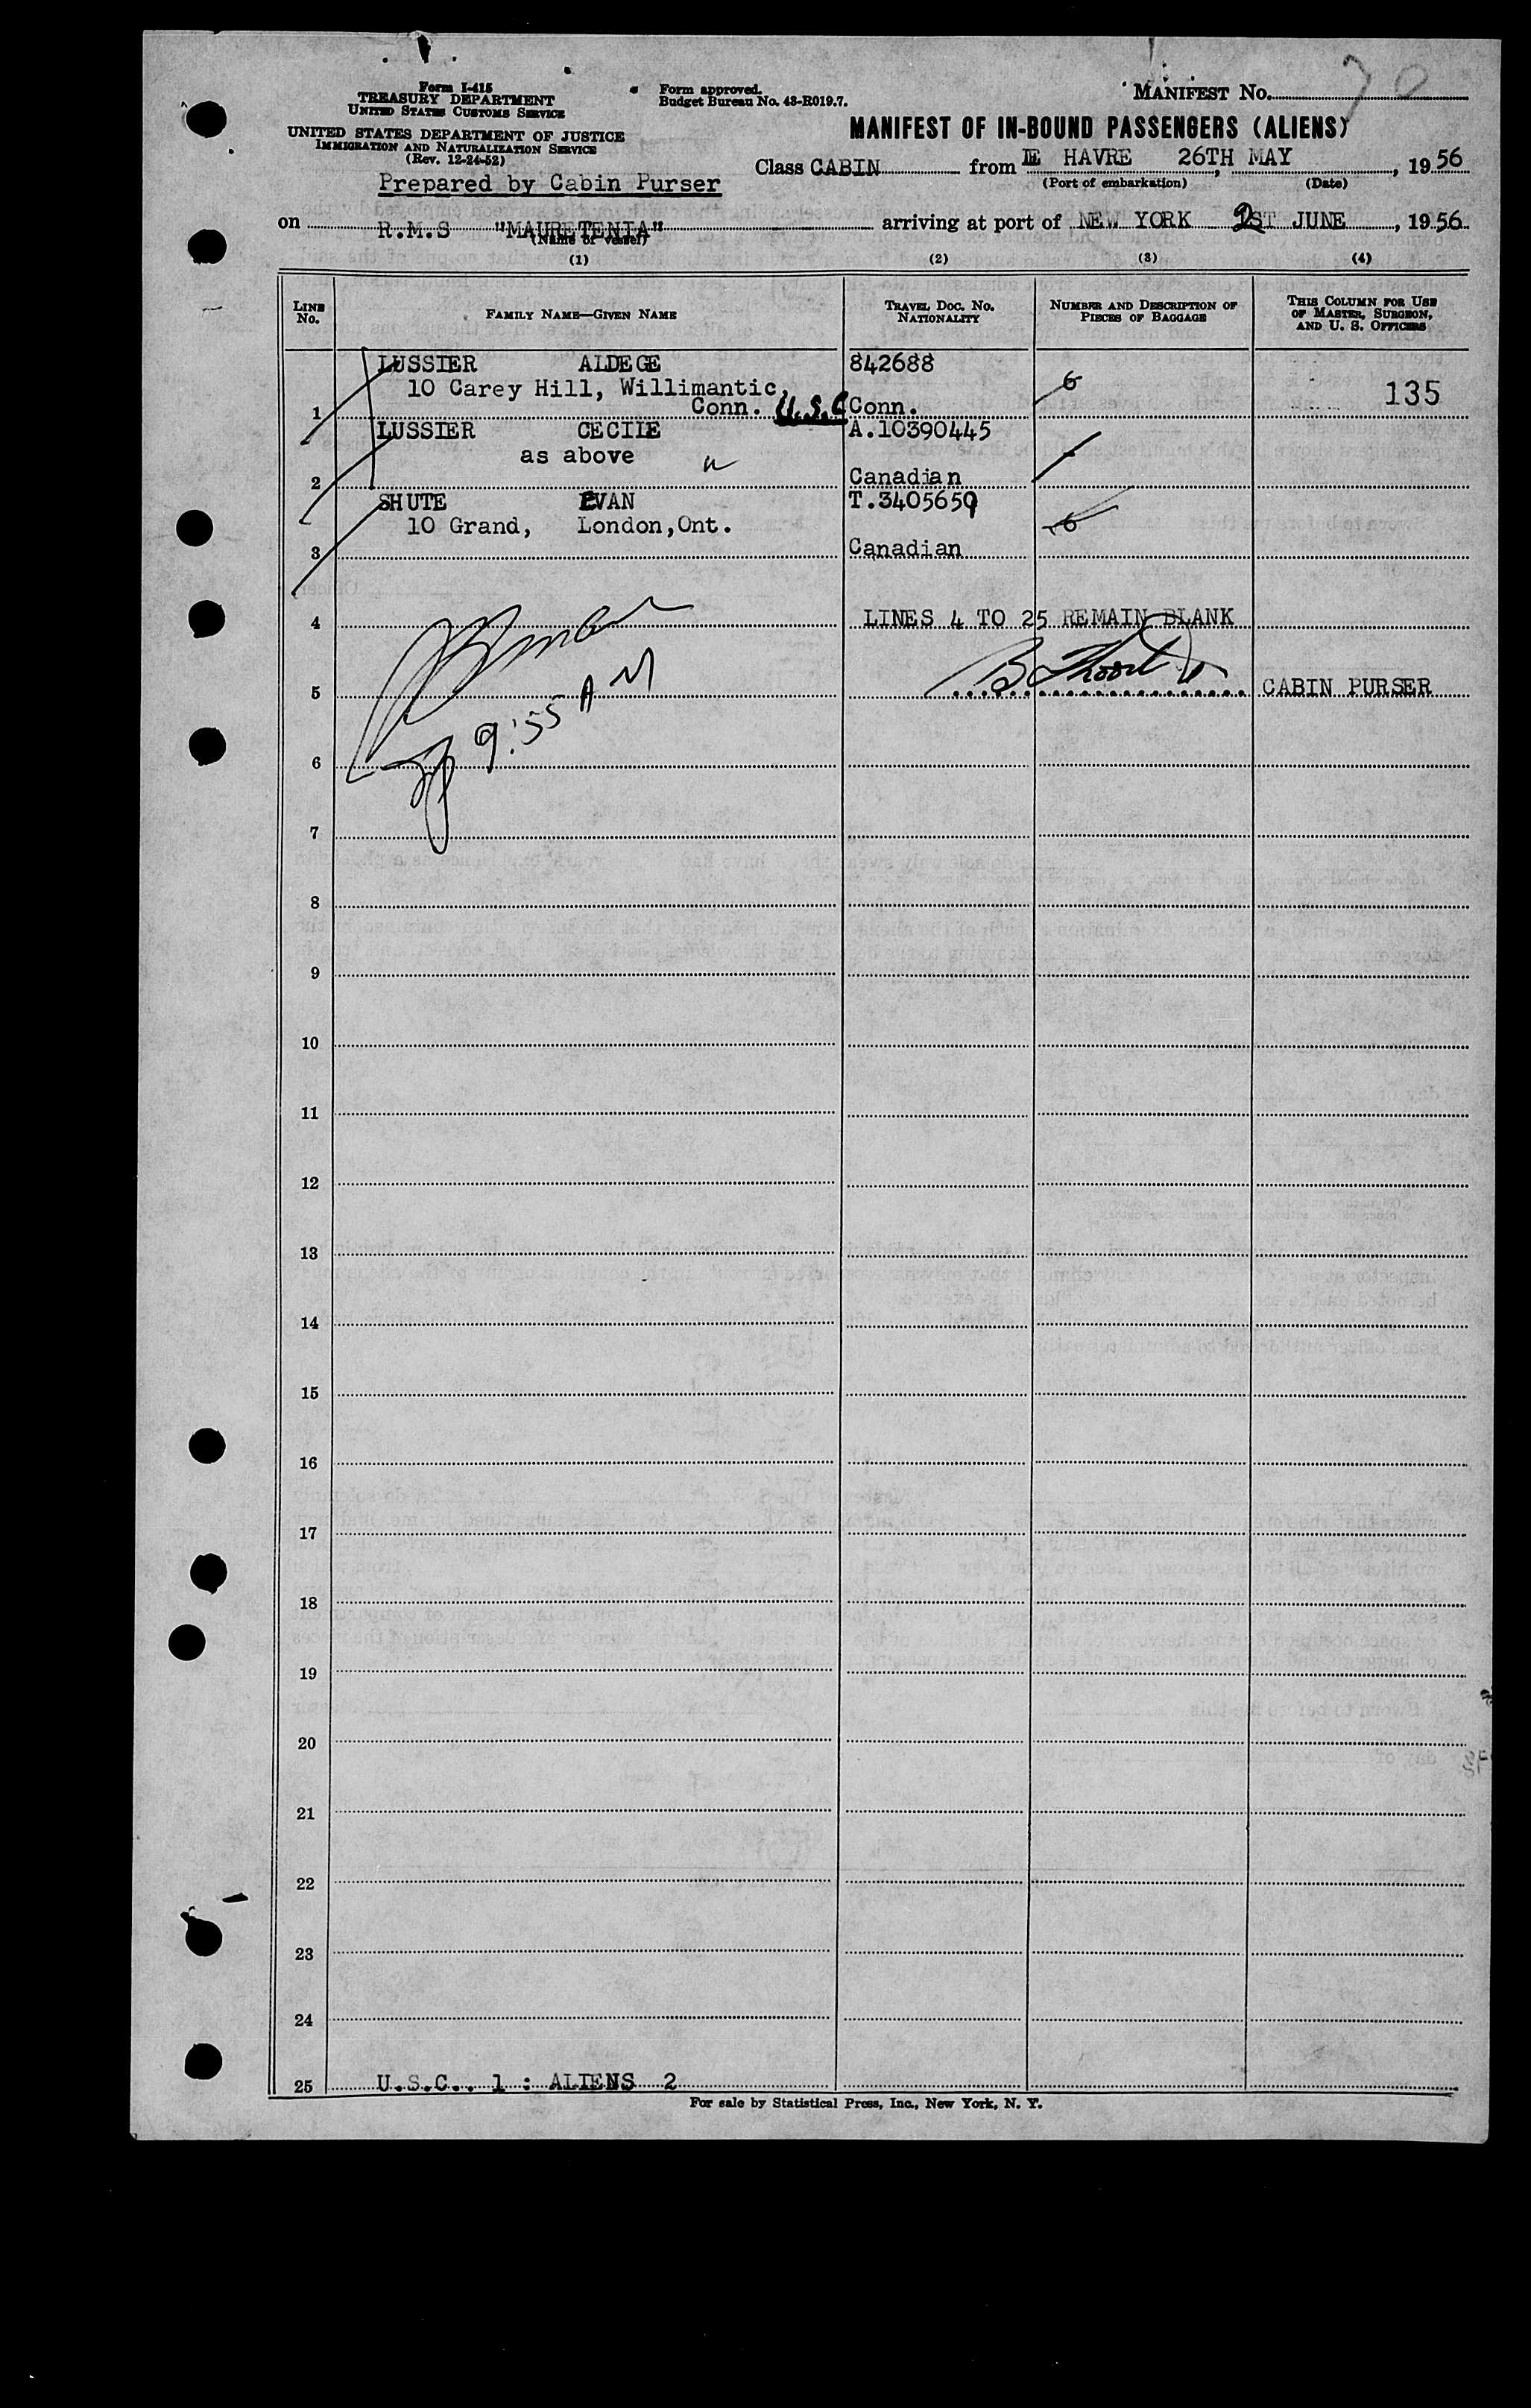 Form I-415
TREASURY DEPARTMENT
UNITED STATES CUSTOMS SERVICE
UNITED STATES DEPARTMENT OF JUSTICE
IMMIGRATION AND NATURALIZATION SERVICE
(Rev. 12-24-52)
Form approved.
Budget Bureau No. 43-R019.7.
MANIFEST NO. 70
MANIFEST OF IN-BOUND PASSENGERS (ALIENS)
Prepared by Cabin Purser
Class CABIN from LE HAVRE 26TH MAY, 1956
(Port of embarkation) (Date)
on R.M.S "MAURETENIA" arriving at port of NEW YORK 2ST JUNE, 1956
(Name of vessel)
(1) (2) (3) (4)
LINE NO. FAMILY NAME—GIVEN NAME TRAVEL DOC. NO. NATIONALITY NUMBER AND DESCRIPTION OF PIECES OF BAGGAGE THIS COLUMN FOR USE OF MASTER, SURGEON, AND U. S. OFFICERS
LUSSIER ALDEGE 842688
10 Carey Hill, Willimantic, 6 135
1 Conn. U.S.C Conn.
LUSSIER CECILE A.10390445
as above
2 Canadian
SHUTE EVAN T.3405659
10 Grand, London,Ont. 6
3 Canadian
4 LINES 4 TO 25 REMAIN BLANK
5 CABIN PURSER
9:55 AM
6
7
8
9
10
11
12
13
14
15
16
17
18
19
20
21
22
23
24
25 U.S.C.. 1 : ALIENS 2
For sale by Statistical Press, Inc., New York, N. Y.